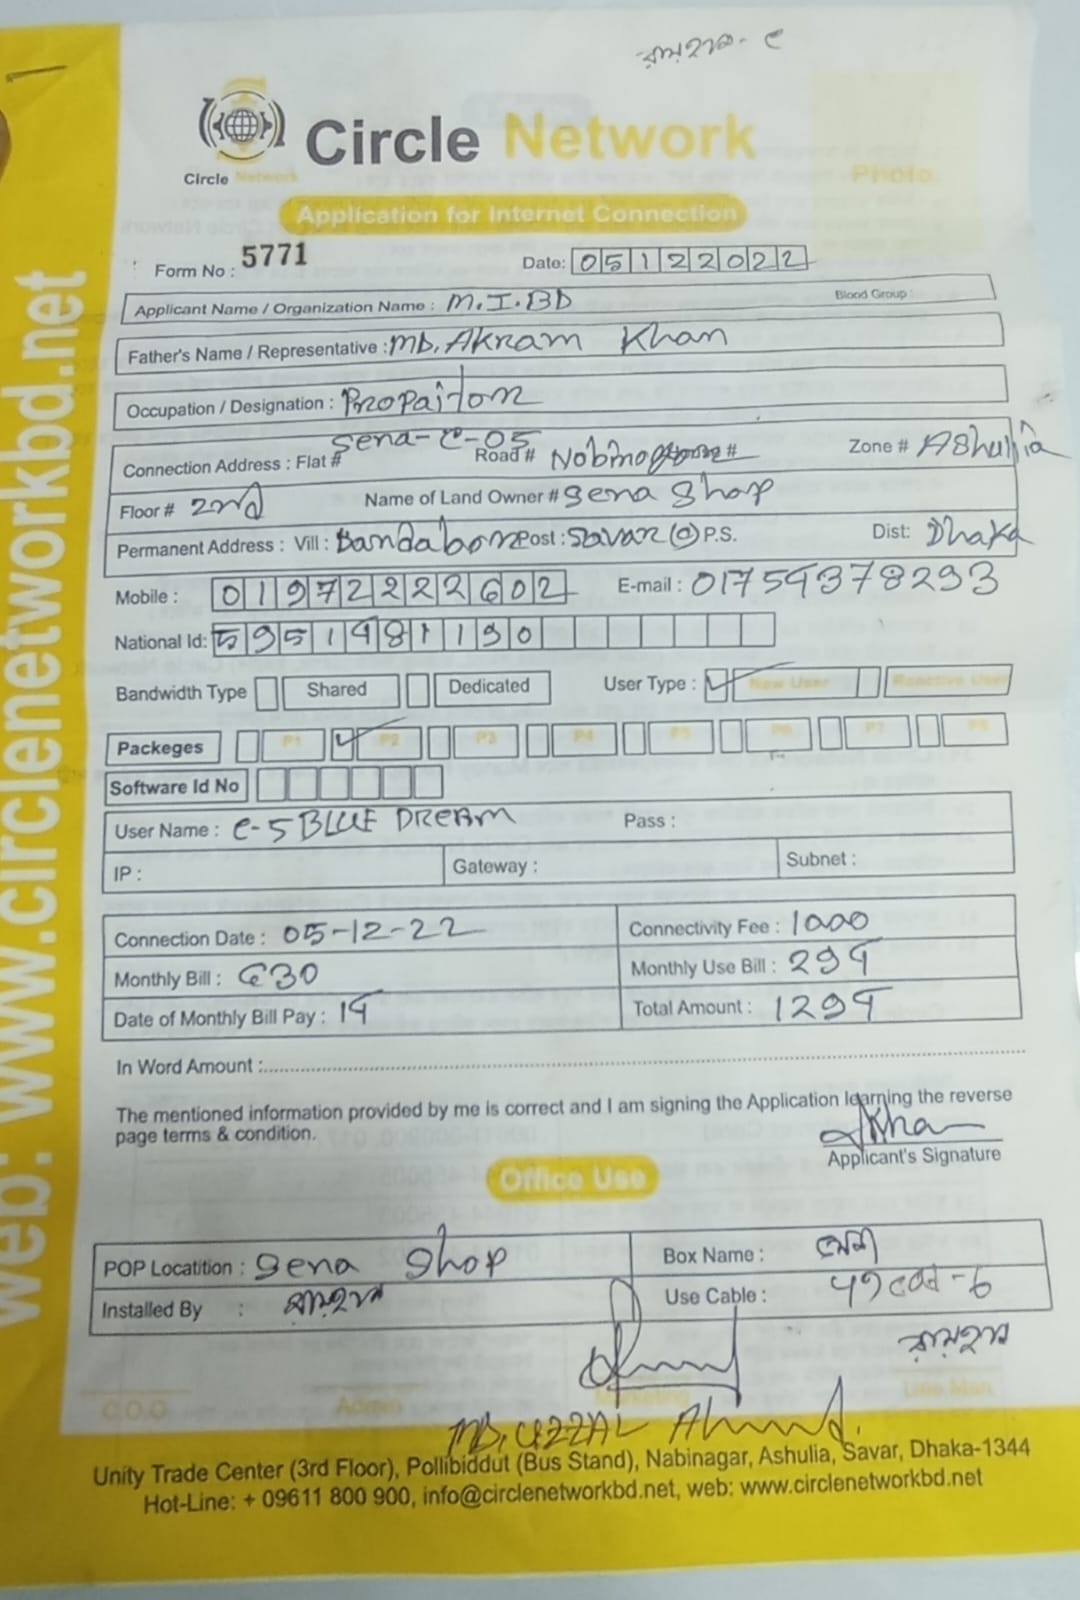 রায়হান - c
Circle Network
Circle Network
Photo.
Application for Internet Connection
Form No : 5771 Date: 05122022
Applicant Name / Organization Name : M.I.BD Blood Group :
Father's Name / Representative : MD. AKRAM Khan
Occupation / Designation : Propaitor
Connection Address : Flat # Sena-C-05 Road # Zone # AShulia
Floor # 2nd Name of Land Owner # Sena Shop
Permanent Address : Vill : Post : Savar P.S. Dist: Dhaka
Mobile : 01972222602 E-mail : 01759378293
National Id: 5951981190
Bandwidth Type Shared Dedicated User Type : New User Reactive User
Packeges P1 P2 P3 P4 P5 P6 P7 P8
Software Id No
User Name : C-5 BLUE DREAM Pass :
IP : Gateway : Subnet :
Connection Date : 05-12-22 Connectivity Fee : 1000
Monthly Bill : 630 Monthly Use Bill : 299
Date of Monthly Bill Pay : 19 Total Amount : 1299
In Word Amount :
The mentioned information provided by me is correct and I am signing the Application learning the reverse
page terms & condition.
Applicant's Signature
Office Use
POP Locatition : Sena Shop Box Name :
Installed By : রায়হান Use Cable :
রায়হান
C.O.O Admin Marketing Line Man
MD. UZZAL Ahmed.
Unity Trade Center (3rd Floor), Pollibiddut (Bus Stand), Nabinagar, Ashulia, Savar, Dhaka-1344
Hot-Line: + 09611 800 900, info@circlenetworkbd.net, web: www.circlenetworkbd.net
web: www.circlenetworkbd.net